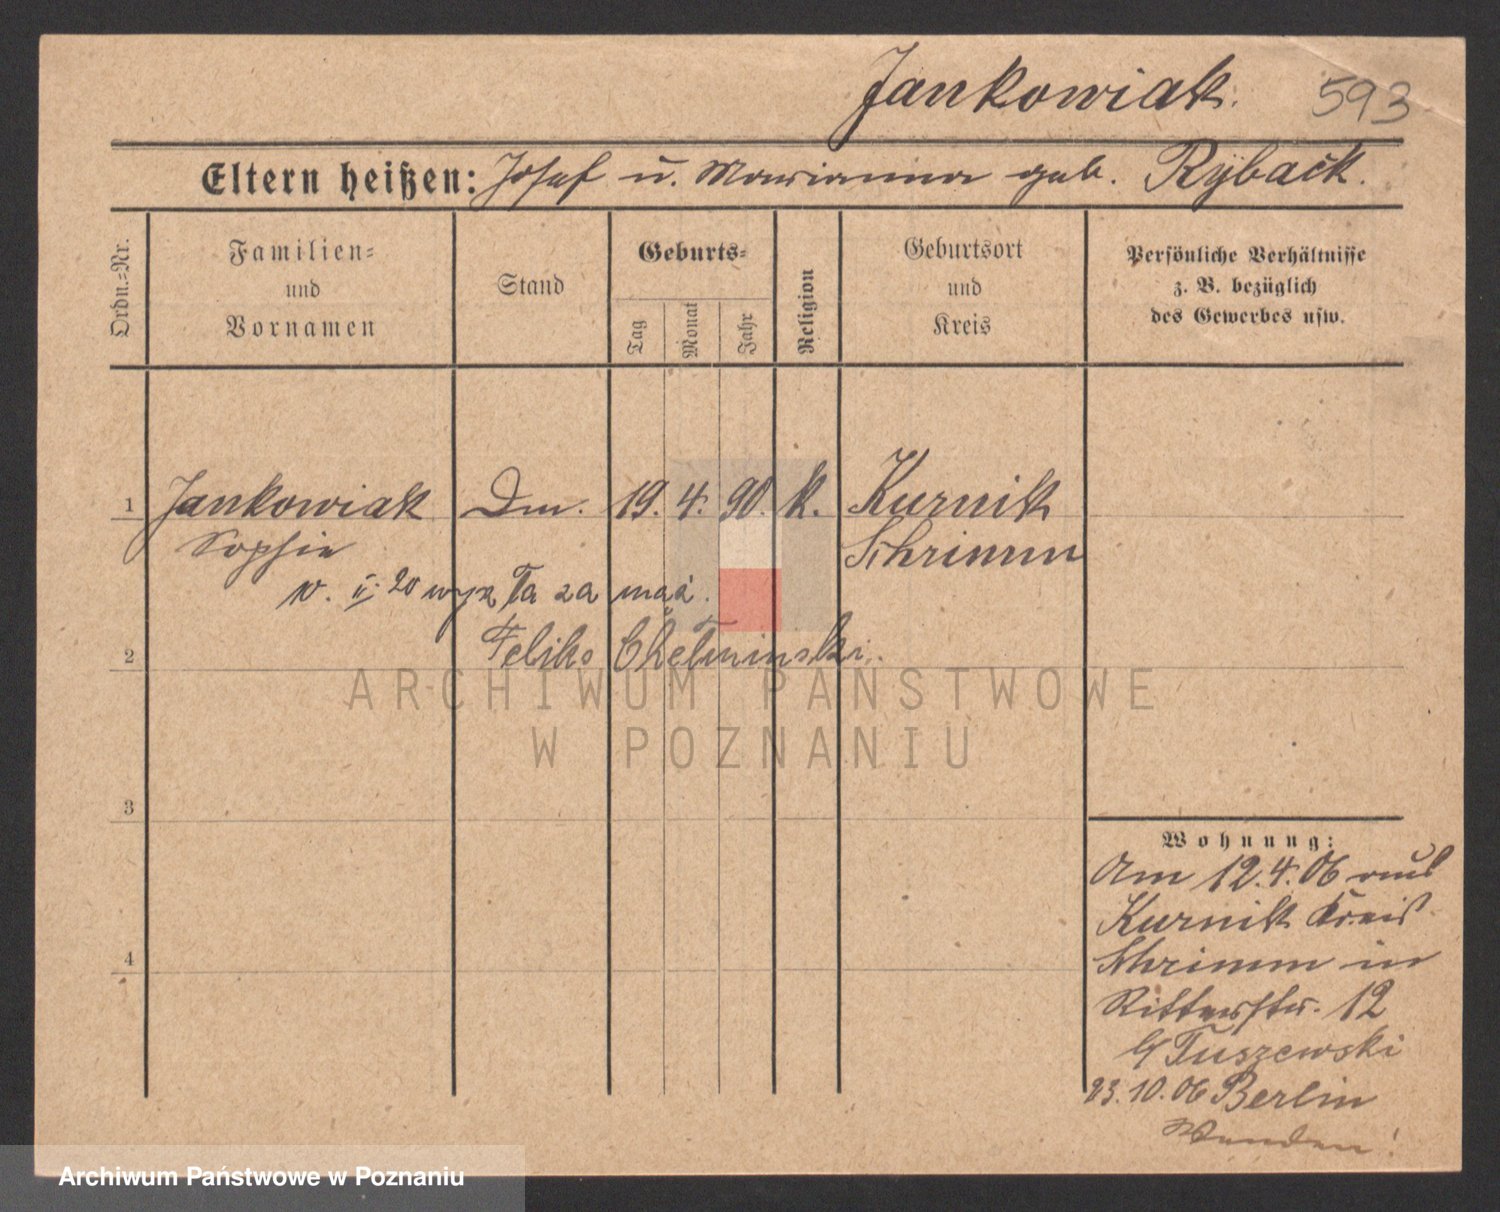 Jankowiak.
593
Eltern heißen: Josef u. Marianna geb. Ryback.
Ordn.=Nr.
Familien=
und
Vornamen
Stand
Geburts=
Tag
Monat
Jahr
Religion
Geburtsort
und
Kreis
Persönliche Verhältnisse
z. B. bezüglich
des Gewerbes usw.
1 Jankowiak Dm. 19. 4. 90. k. Kurnik
Sophie Schrimm
w. 20 wyszła za mąż.
2 Feliks Chełminski.
ARCHIWUM PAŃSTWOWE
W POZNANIU
3
4
Wohnung:
Am 12.4.06 aus
Kurnik Kreis
Schrimm in
Ritterstr. 12
b/ Tuszewski
23.10.06 Berlin
Wenden!
Archiwum Państwowe w Poznaniu